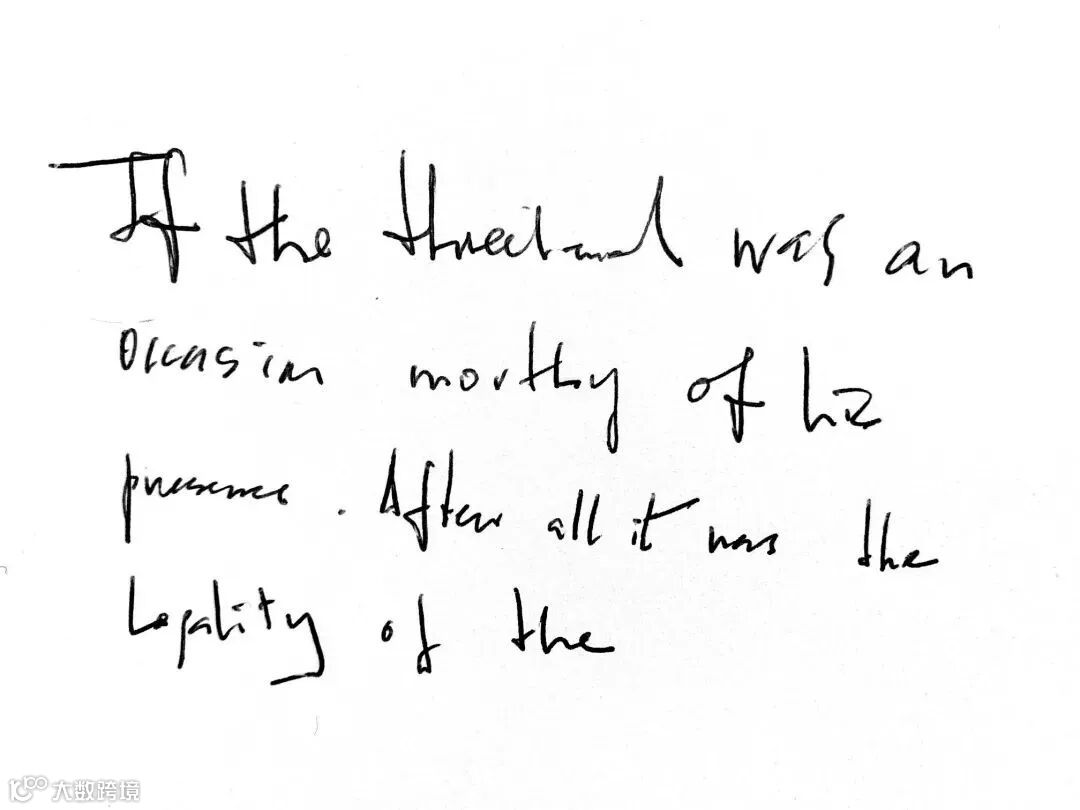 If the was an
occasion worthy of his
presence. After all it was the
Legality of the
大数跨境